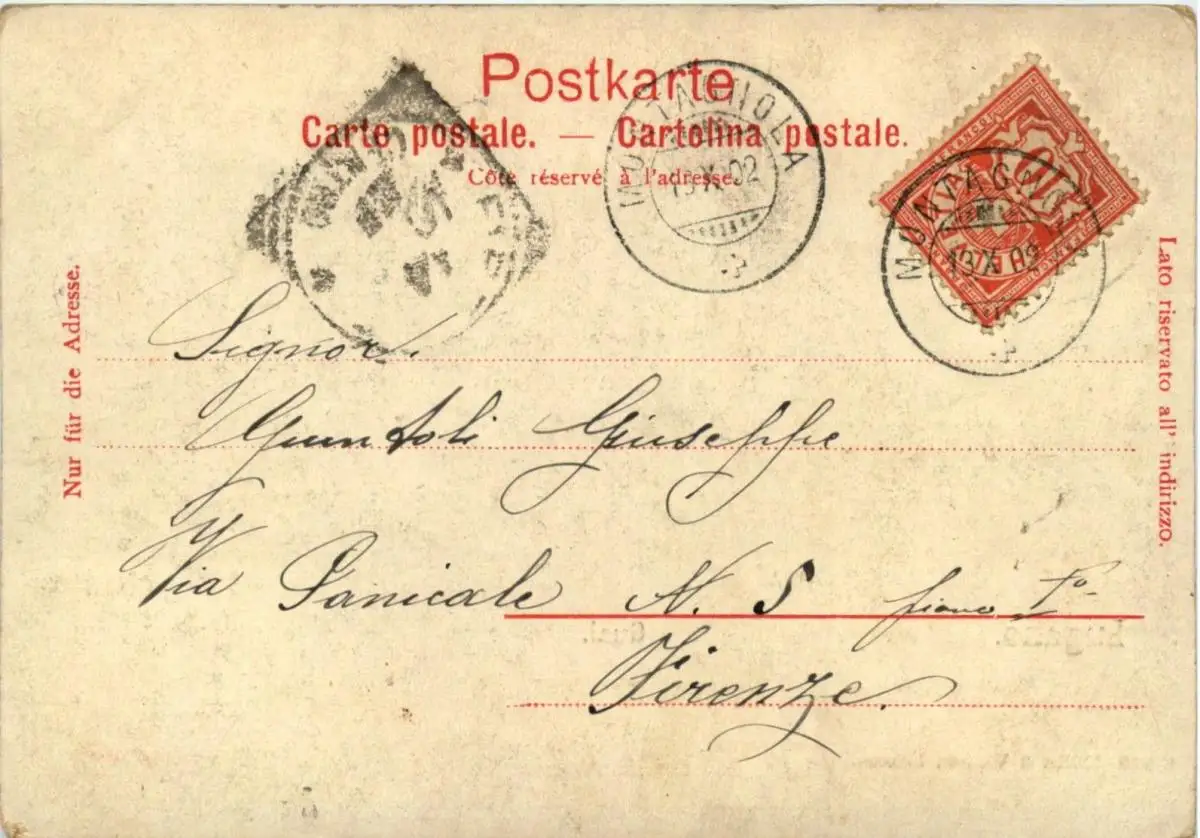 Postkarte
Carte postale. — Cartolina postale.
Côté réservé à l'adresse.
MONTAGNOLA
FRANCO
MONTAGNOLA
Nur für die Adresse.
Lato riservato all' indirizzo.
Signor.
Guntoli Giuseppe
Via Panicale N. 5 piano Iº
Firenze.